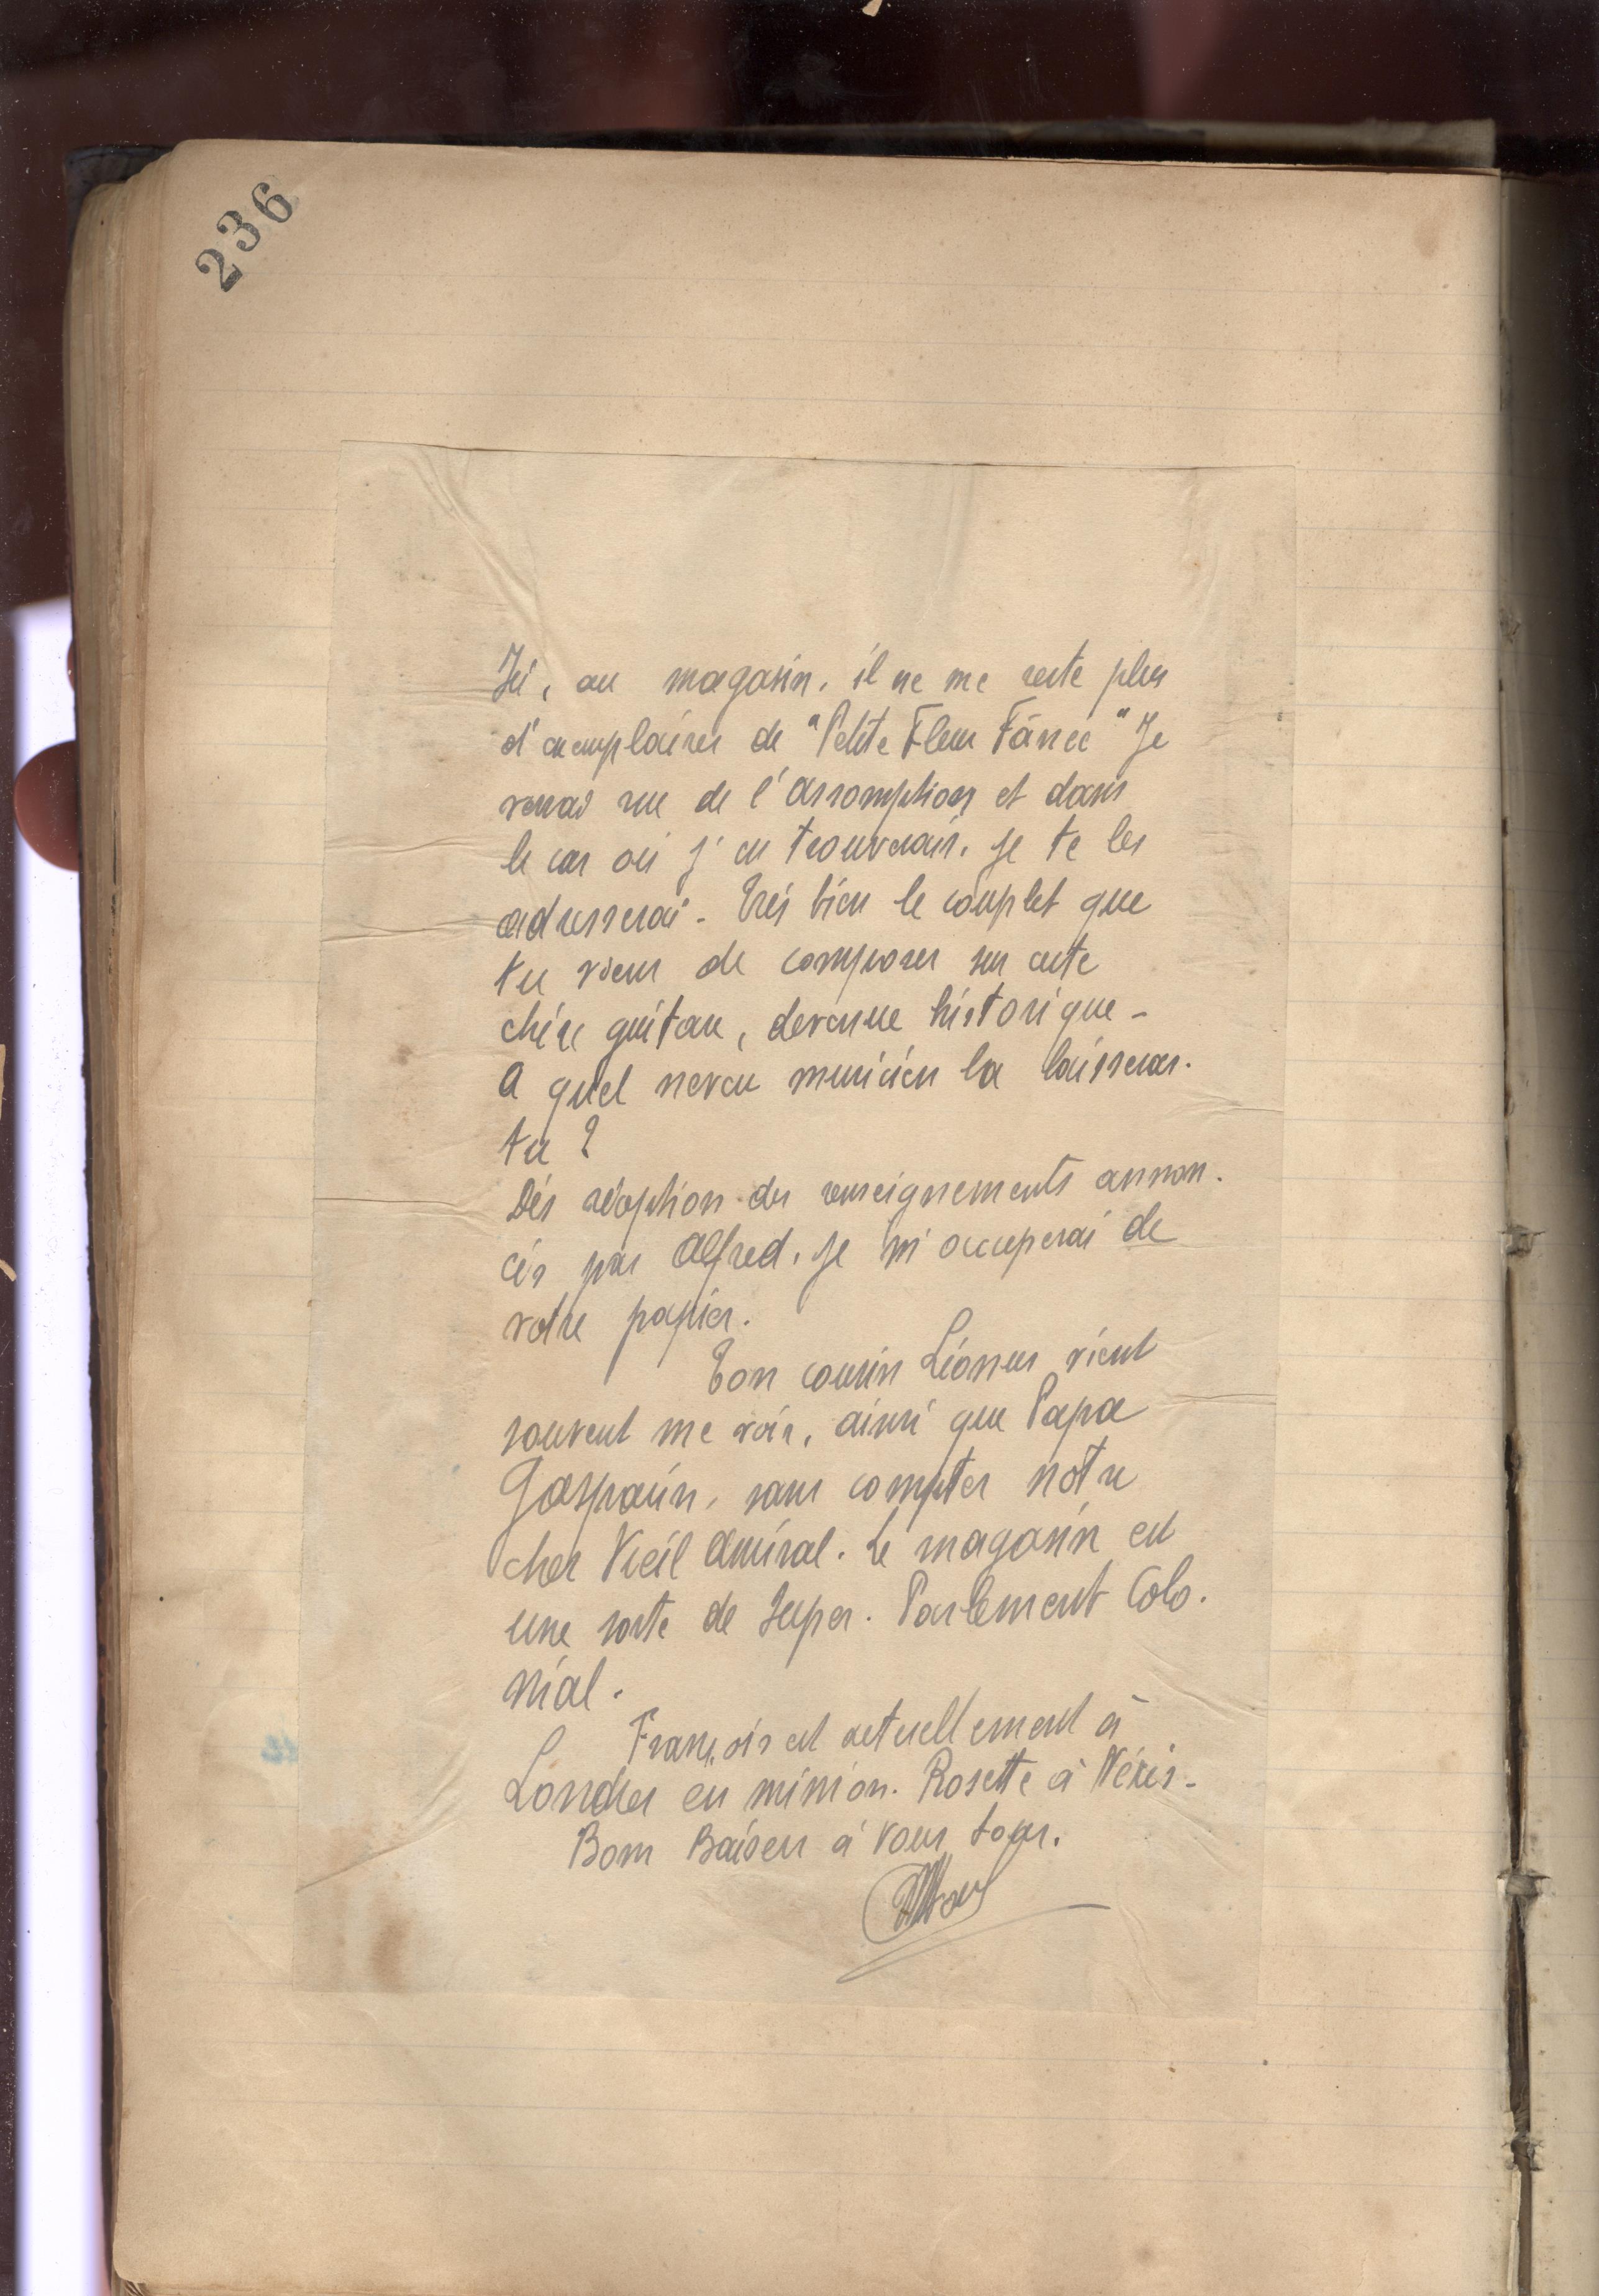 236
Ici, au magasin, il ne me reste plus
d'exemplaires de "Petite Fleur Fânée" Je
verrai rue de l'Assomption et dans
le cas où j'en trouverais, je te les
adresserai - Très bien le couplet que
tu viens de composer sur cette
chère guitare, devenue historique -
A quel neveu musicien la laisseras-
tu ?
Dès réception des renseignements annon-
cés par Alfred, je m'occuperai de
votre papier.
Ton cousin Léonus vient
souvent me voir, ainsi que Papa
Gasparin, sans compter notre
cher Vieil Amiral. Le magasin est
une sorte de Super-Parlement Colo-
nial.
François est actuellement à
Londres en mission. Rosette à Néris -
Bons Baisers à vous tous.